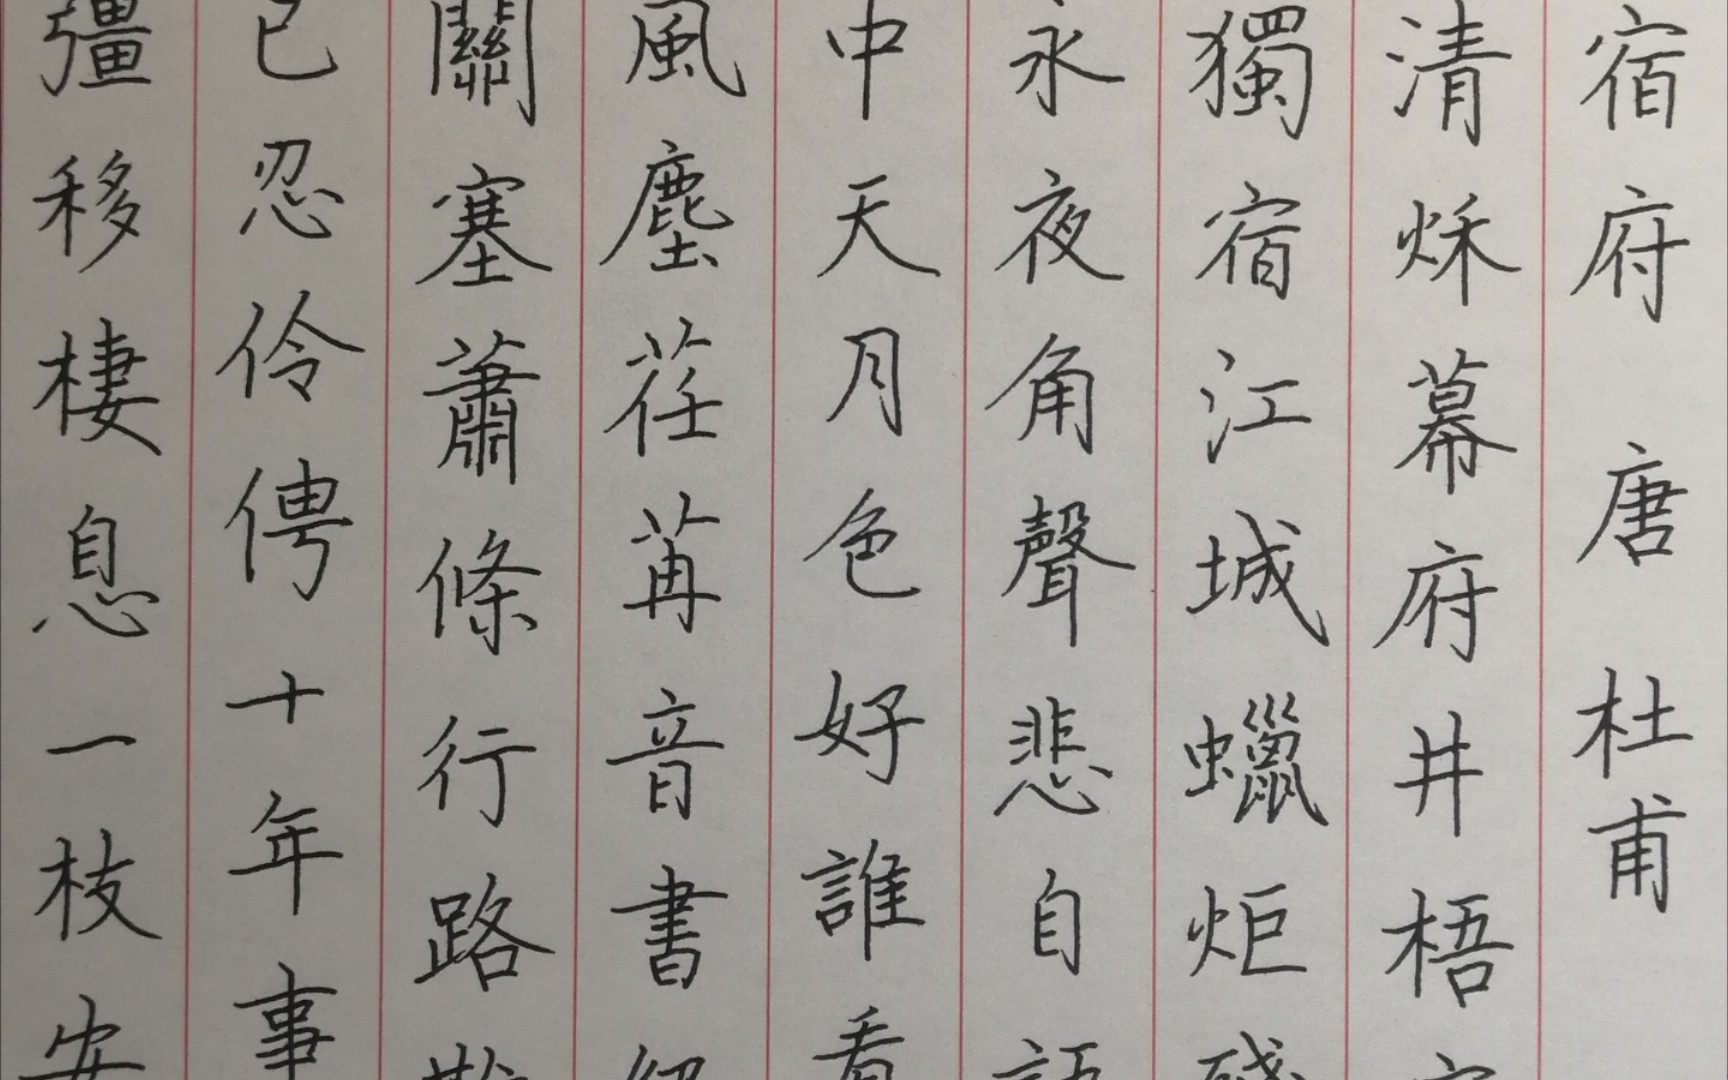 宿府 唐 杜甫
清秌幕府井梧
獨宿江城蠟炬
永夜角聲悲自
中天月色好誰看
風塵荏苒音書
關塞蕭條行路
已忍伶俜十年事
彊移棲息一枝安